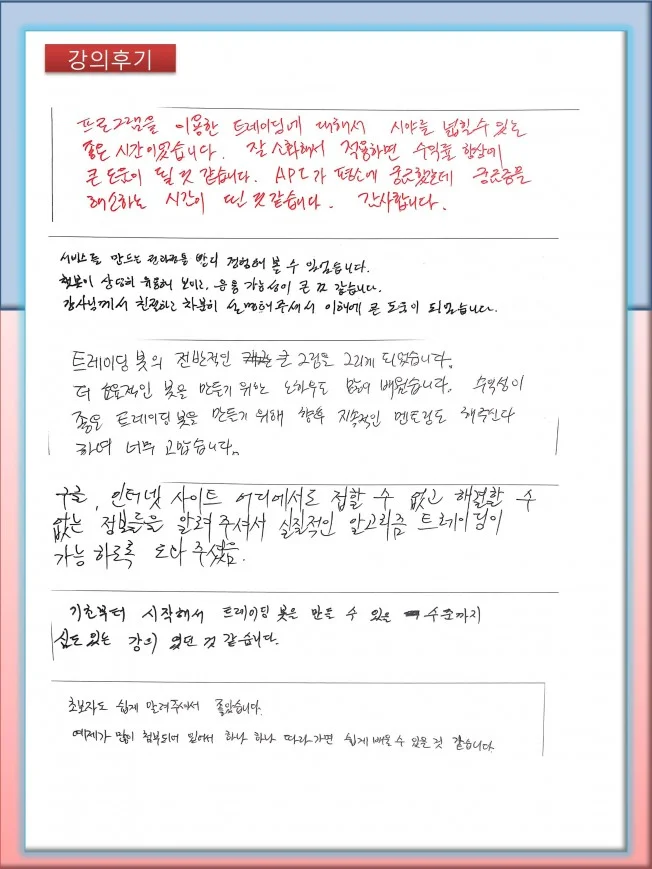 강의후기
프로그램을 이용한 트레이딩에 대해서 시야를 넓힐 수 있는
좋은 시간이었습니다. 잘 소화해서 적용하면 수익률 향상에
큰 도움이 될 것 같습니다. API가 평소에 궁금했는데 궁금증을
해소하는 시간이 된 것 같습니다. 감사합니다.
서비스를 만드는 전과정을 반디 경험해 볼 수 있었습니다.
챗봇이 상당히 유용해 보이고, 응용 가능성이 큰 것 같습니다.
강사님께서 친절하고 차분히 설명해주셔서 이해에 큰 도움이 되었습니다.
트레이딩 봇의 전반적인 큰 그림을 그리게 되었습니다.
더 효율적인 봇을 만들기 위한 노하우도 많이 배웠습니다. 수익성이
좋은 트레이딩 봇을 만들기 위해 향후 지속적인 멘토링도 해주신다
하여 너무 고맙습니다.
구글, 인터넷 사이트 어디에서도 접할 수 없고 해결할 수
없는 정보들을 알려 주셔서 실질적인 알고리즘 트레이딩이
가능하도록 도와 주셨음.
기초부터 시작해서 트레이딩 봇을 만들 수 있을 수준까지
심도있는 강의 였던 것 같습니다.
초보자도 쉽게 알려주셔서 좋았습니다.
예제가 많이 첨부되어 있어서 하나 하나 따라가면 쉽게 배울 수 있을 것 같습니다.